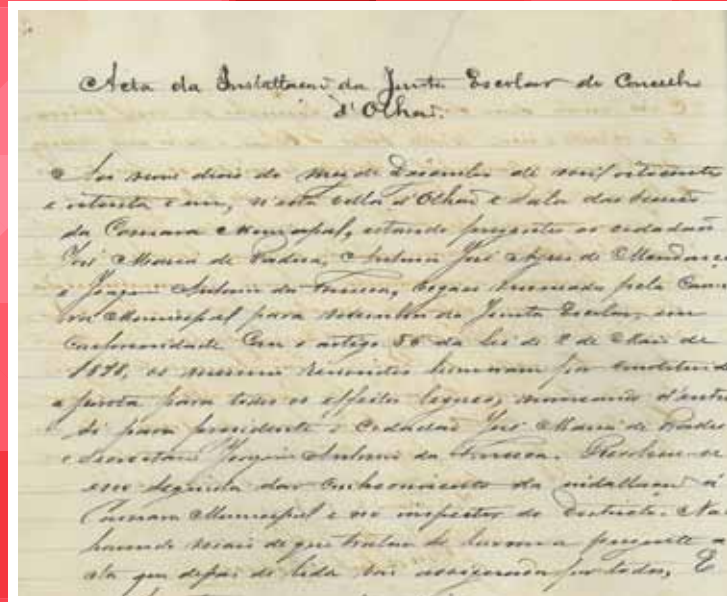 Acta da Installação da Junta Escolar do Concelho
d'Olhão.
Aos nove dias do mez de Dezembro de mil oitocentos
e oitenta e um, n'esta villa d'Olhão e sala das sessões
da Camara Municipal, estando presentes os cidadãos
José Maria de Padua, Antonio José Ayres de Mendonça
e Joaquim Antonio da Fonseca, vogaes nomeados pela Cama
ra Municipal para membros da Junta Escolar, em
conformidade com o artigo 56 da lei de 2 de Maio de
1878, os mesmos reunidos houveram por constituida
a junta para todos os effeitos legaes, nomeando d'entre
si para presidente o cidadão José Maria de Padua
e Secretario Joaquim Antonio da Fonseca. Resolveu-se
em seguida dar conhecimento da installação á
Camara Municipal e ao inspector do districto. Não
havendo mais de que tratar se lavrou a presente a
cta que depois de lida vai assignada por todos, E